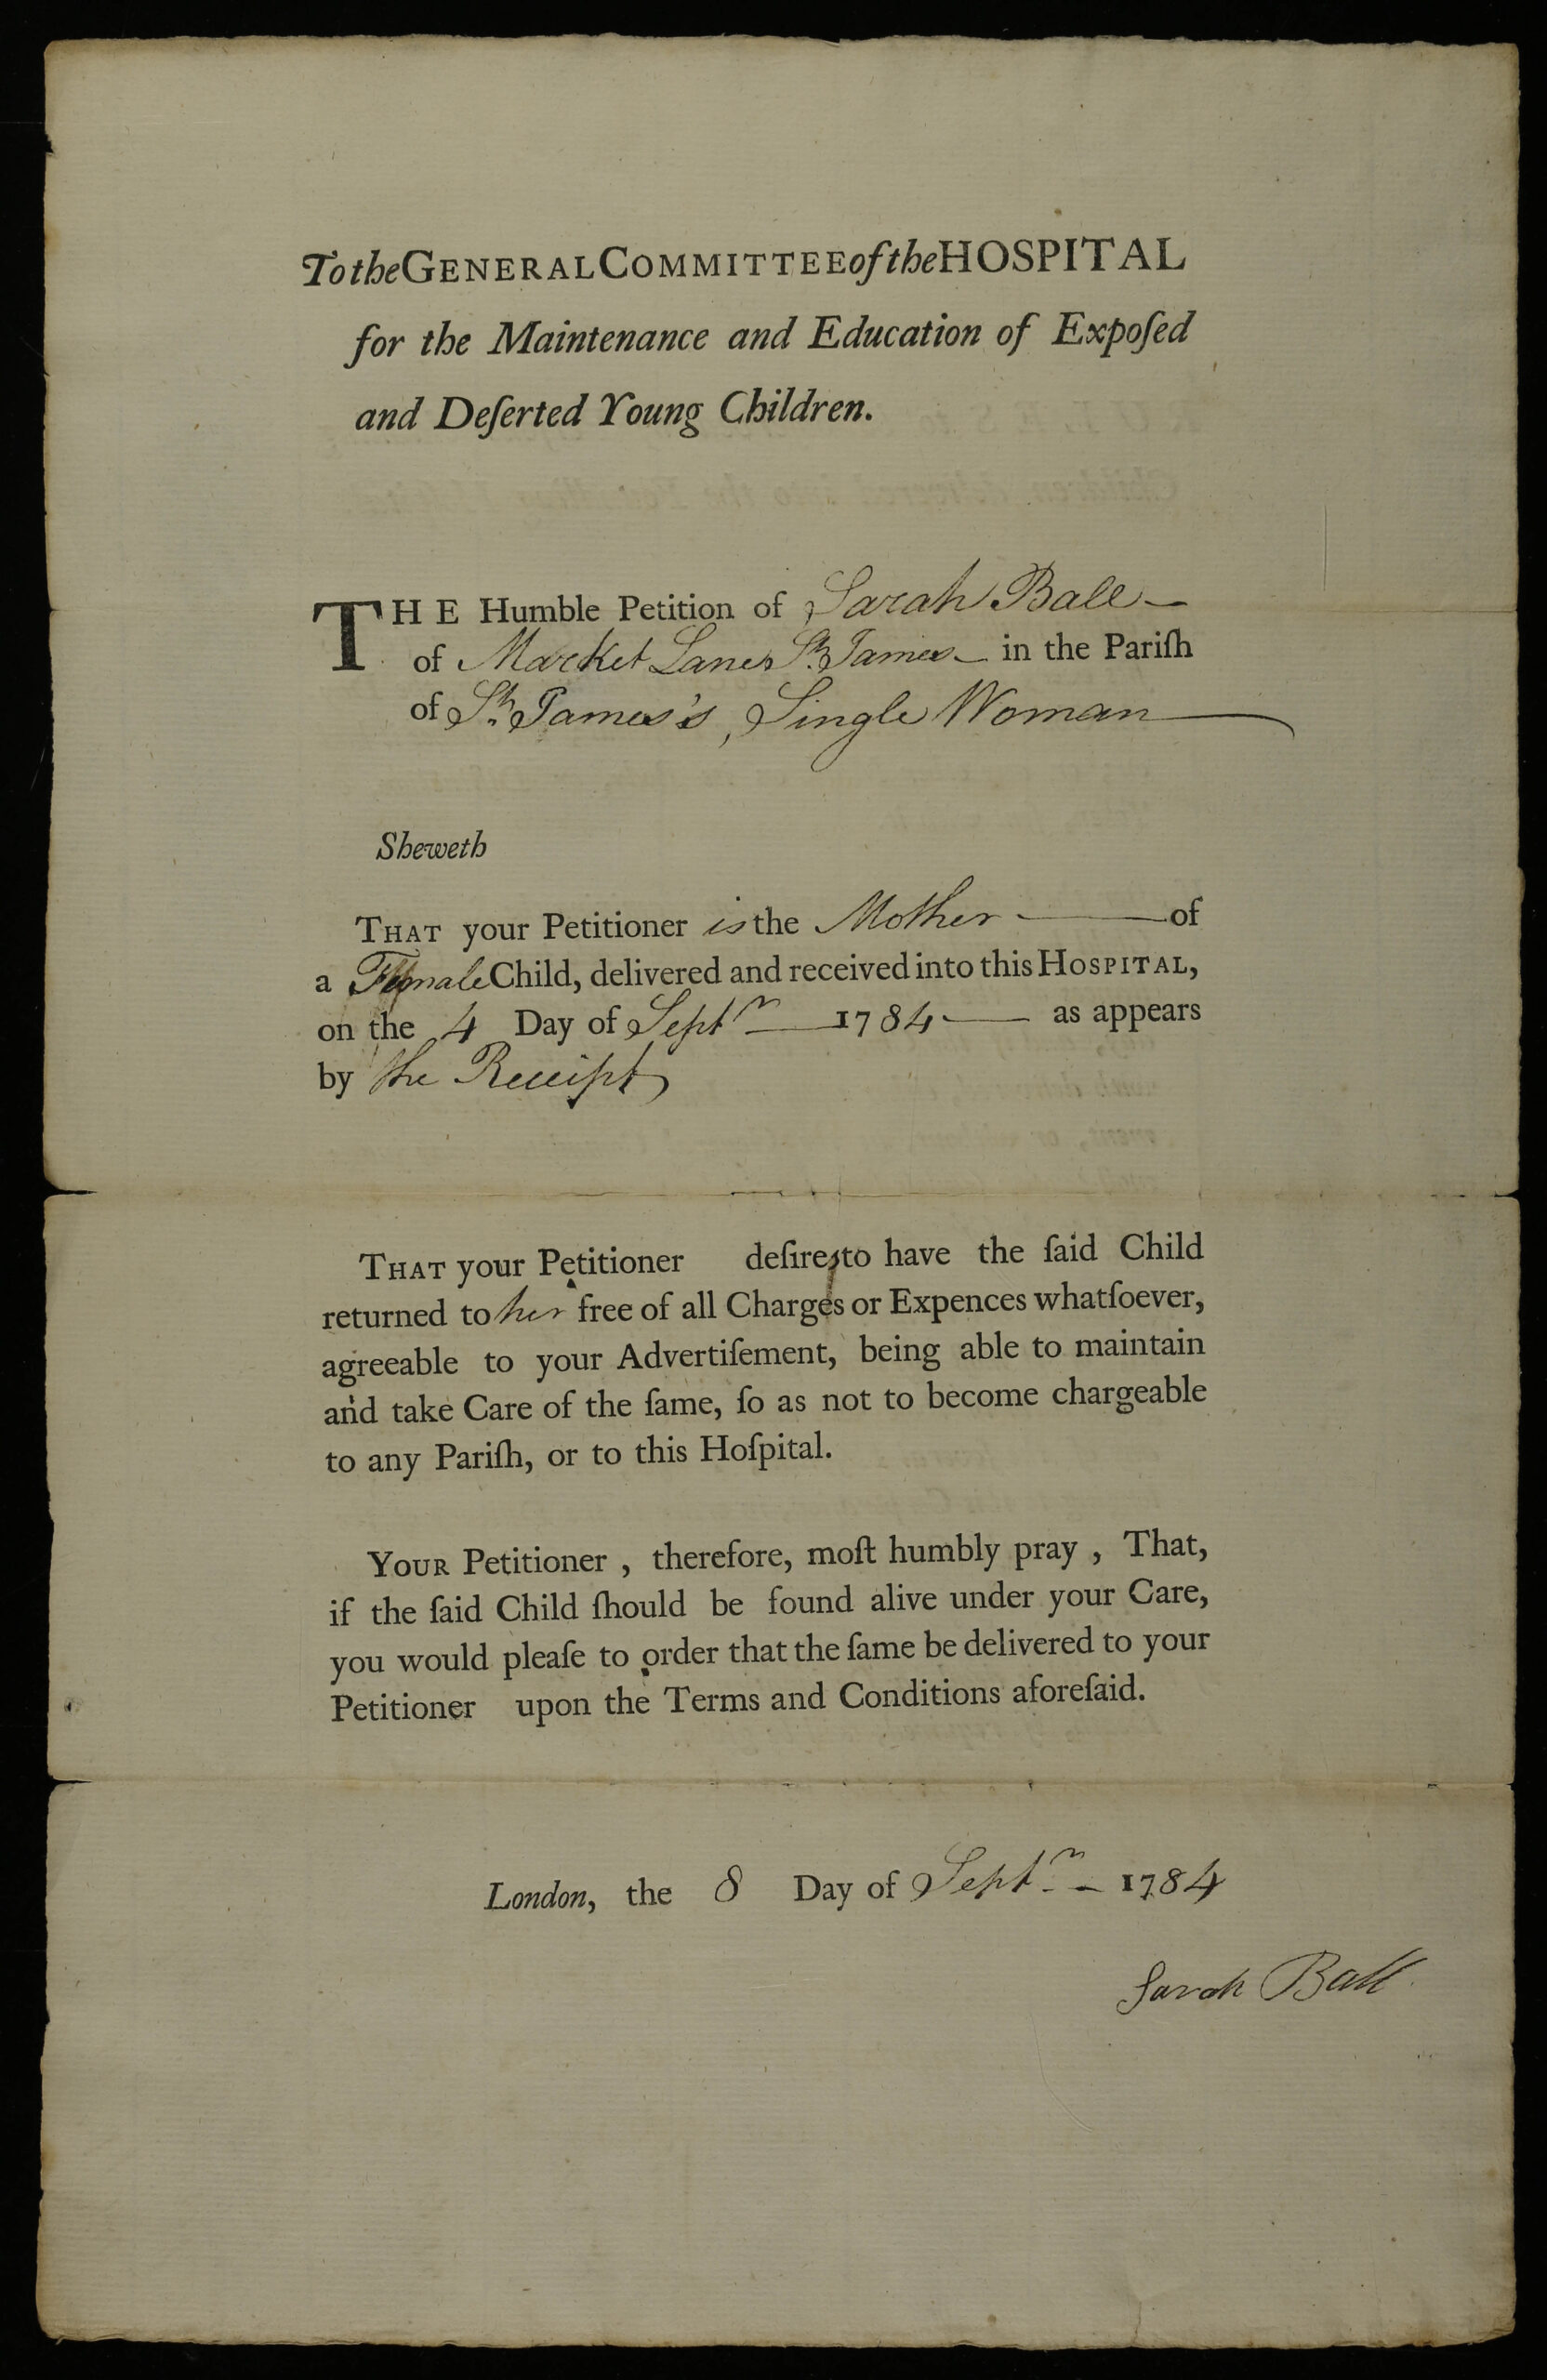 To the GENERAL COMMITTEE of the HOSPITAL
for the Maintenance and Education of Expoſed
and Deſerted Young Children.
THE Humble Petition of Sarah Ball
of Market Lane St. James in the Pariſh
of St. James's, Single Woman
Sheweth
THAT your Petitioner is the Mother of
a Female Child, delivered and received into this HOSPITAL,
on the 4 Day of Septr 1784 as appears
by the Receipt
THAT your Petitioner deſires to have the ſaid Child
returned to her free of all Charges or Expences whatſoever,
agreeable to your Advertiſement, being able to maintain
and take Care of the ſame, ſo as not to become chargeable
to any Pariſh, or to this Hoſpital.
YOUR Petitioner , therefore, moſt humbly pray , That,
if the ſaid Child ſhould be found alive under your Care,
you would pleaſe to order that the ſame be delivered to your
Petitioner upon the Terms and Conditions aforeſaid.
London, the 8 Day of Septr. 1784
Sarah Ball